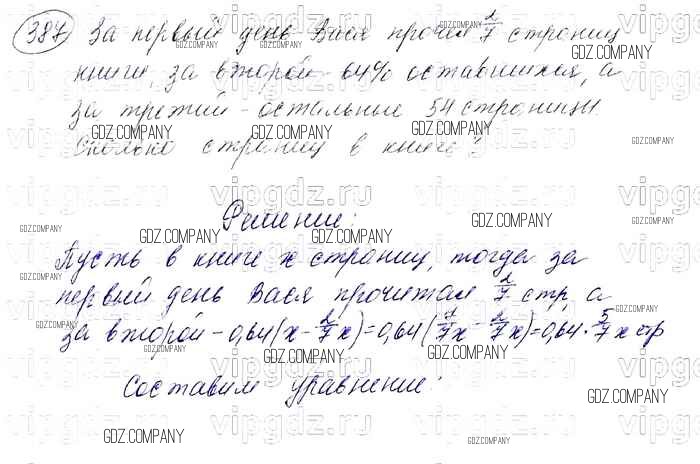 387 За первый день Вася прочёл 2/7 страниц
книги, за второй - 64% оставшихся, а
за третий - остальные 54 страницы.
Сколько страниц в книге?
Решение:
Пусть в книге x страниц, тогда за
первый день Вася прочитал 2/7 стр, а
за второй - 0,64(x - 2/7 x) = 0,64(7/7 x - 2/7 x) = 0,64 · 5/7 x стр
Составим уравнение:
GDZ.COMPANY
vipgdz.ru